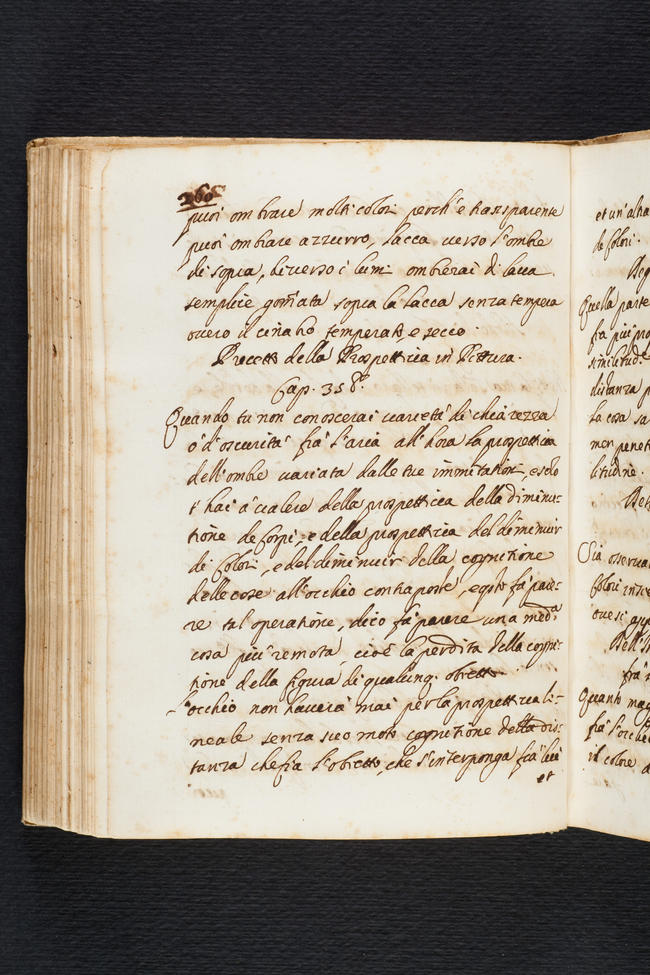 260
puoi ombrare molti colori perch'è trassparente
puoi ombrare azzurro, lacca verso l'ombre
di sopra, di verso i lumi ombrerai di lacca
semplice gom̃ata sopra la lacca senza tempera
overo il cinabo temperato, e secco.
Precetti della Prospettiva in Pittura.
Cap. 358.
Quando tu non conoscerai varietà di chiarezza
ò d'oscurità frà l'aria all'hora la prospettiva
dell'ombre variata dalle tue immitationi, e solo
t'hai a valere della prospettiva della diminu-
tione de Corpi, e della prospettiva del diminuir
di Colori, e del diminuir della cognitione
delle cose all'occhio contraposte, e qsto fà pare-
re tal operatione, dico fà parere una medᵃ
cosa più remota, cioè la perdita della cogni-
tione della figura di qualunq. obietto.
L'occhio non haverà mai per la prospettiva li-
neale senza suo moto cognitione della dis-
tanza che fra l'obietto, che s'interponga frà lui
et
et un'altra
de Colori.
Quella parte
frà più pro
similitud.
distanza p
la cosa sa
men penet
litudine.
Sia osserva
Colori inse
ove si app
Dell'
frà
Quanto mag
frà l'occhio
il colore d